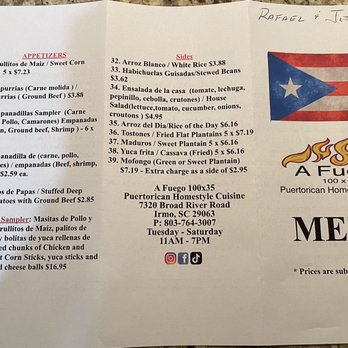 APPETIZERS
rullitos de Maiz / Sweet Corn
5 x $7.23
purrias (Carne molida) /
urrias ( Ground Beef ) $3.88
panadillas Sampler (Carne
Pollo, Camarones) Empanadas
en, Ground Beef, Shrimp ) - 6 x
panadilla de (carne, pollo,
nes) / empanadas (Beef, shrimp,
$2.59 ea.
os de Papas / Stuffed Deep
atoes with Ground Beef $2.85
Sampler: Masitas de Pollo y
rullitos de Maiz, palitos de
y bolitas de yuca rellenas de
ed chunks of Chicken and
t Corn Sticks, yuca sticks and
d cheese balls $16.95
Sides
32. Arroz Blanco / White Rice $3.88
33. Habichuelas Guisadas/Stewed Beans
$3.62
34. Ensalada de la casa (tomate, lechuga,
pepinillo, cebolla, crutones) / House
Salad(lettuce,tomato, cucumber, onions,
croutons) $4.95
35. Arroz del Dia/Rice of the Day $6.16
36. Tostones / Fried Flat Plantains 5 x $7.19
37. Maduros / Sweet Plantain 5 x $6.16
38. Yuca frita / Cassava (Fried) 5 x $6.16
39. Mofongo (Green or Sweet Plantain)
$7.19 - Extra charge as a side of $2.95
A Fuego 100x35
Puertorican Homestyle Cuisine
7320 Broad River Road
Irmo, SC 29063
P: 803-764-3007
Tuesday - Saturday
11AM - 7PM
RAFAEL &
A Fue
100 x
Puertorican Homes
ME
* Prices are sub